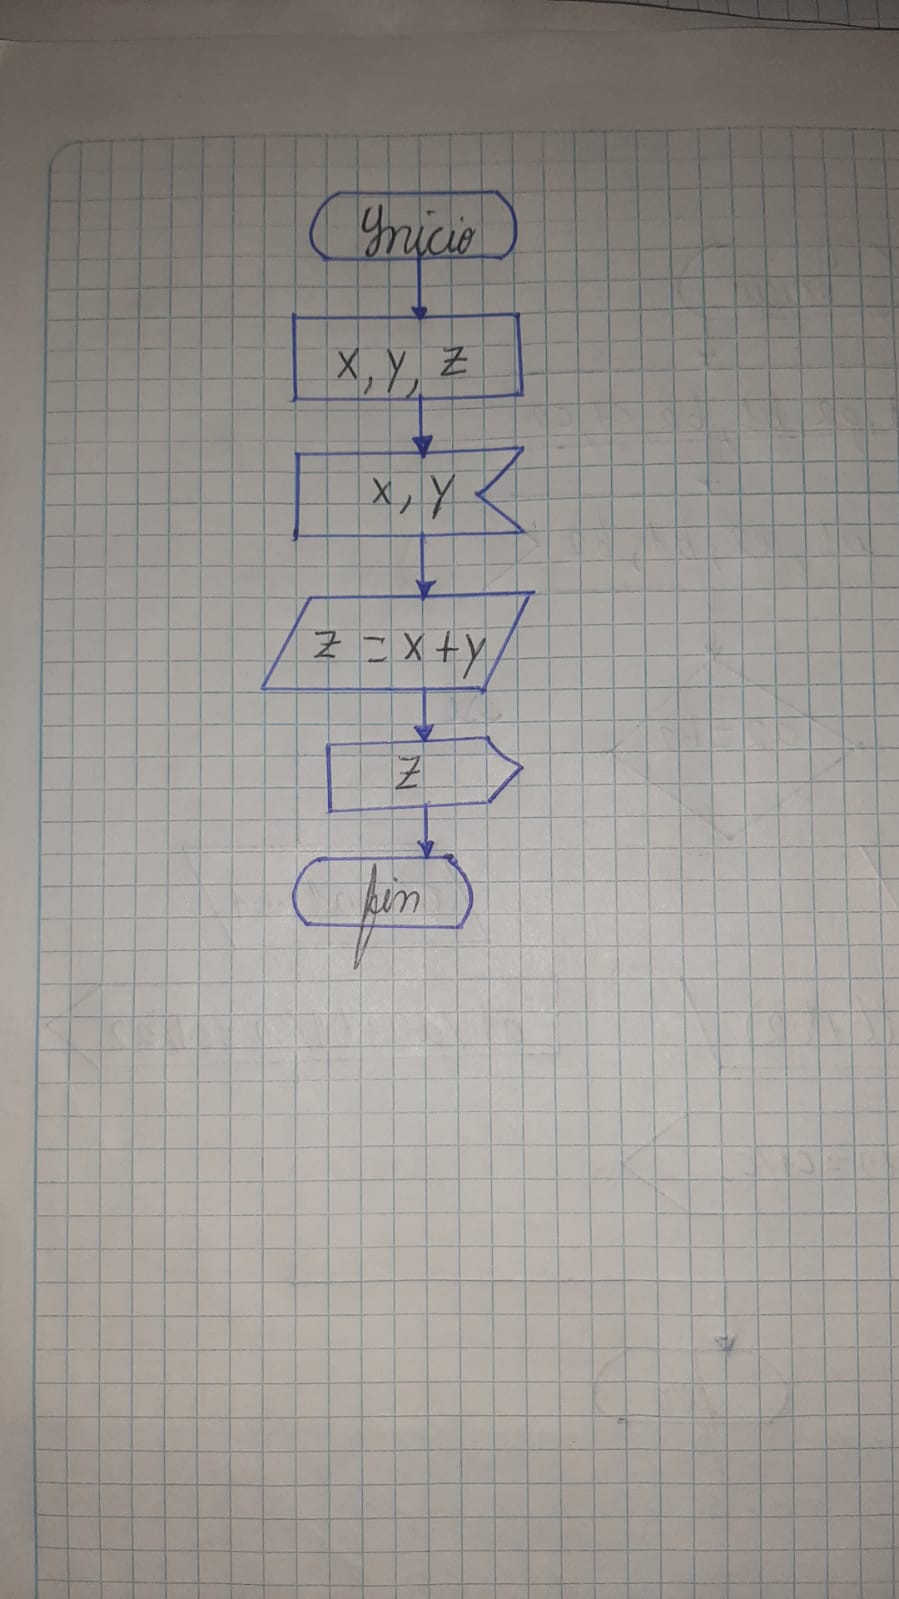 Inicio
x, y, z
x, y
z = x + y
z
fin